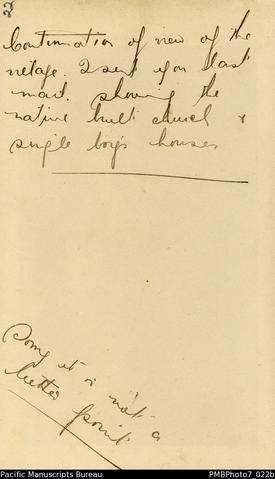 22
Continuation of view of the
netage. I sent you last
mail. showing the
native built church &
single boys houses
Sorry it is not a
better print
Pacific Manuscripts Bureau
PMBPhoto7_022b